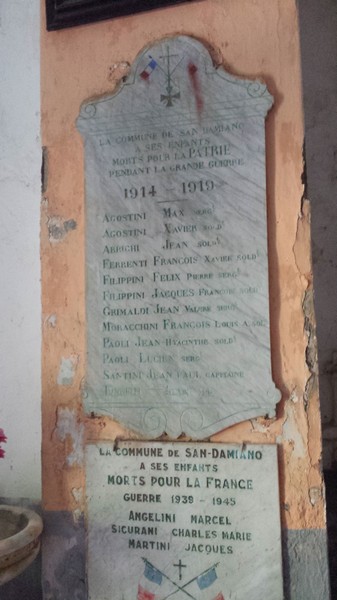 LA COMMUNE DE SAN DAMIANO
A SES ENFANTS
MORTS POUR LA PATRIE
PENDANT LA GRANDE GUERRE
1914 - 1919
AGOSTINI MAX SERGt
AGOSTINI XAVIER SOLDt
JEAN SOLDt
FERRENTI FRANCOIS XAVIER SOLDt
FILIPPINI FELIX PIERRE SERGt
FILIPPINI JACQUES FRANCOIS SOLDt
GRIMALDI JEAN VALERE SERGt
MORACCHINI FRANCOIS LOUIS A SOLt
PAOLI JEAN HYACINTHE SOLDt
PAOLI LUCIEN SERGt
SANTINI JEAN PAUL
LA COMMUNE DE SAN-DAMIANO
A SES ENFANTS
MORTS POUR LA FRANCE
GUERRE 1939 - 1945
ANGELINI MARCEL
SICURANI CHARLES MARIE
MARTINI JACQUES